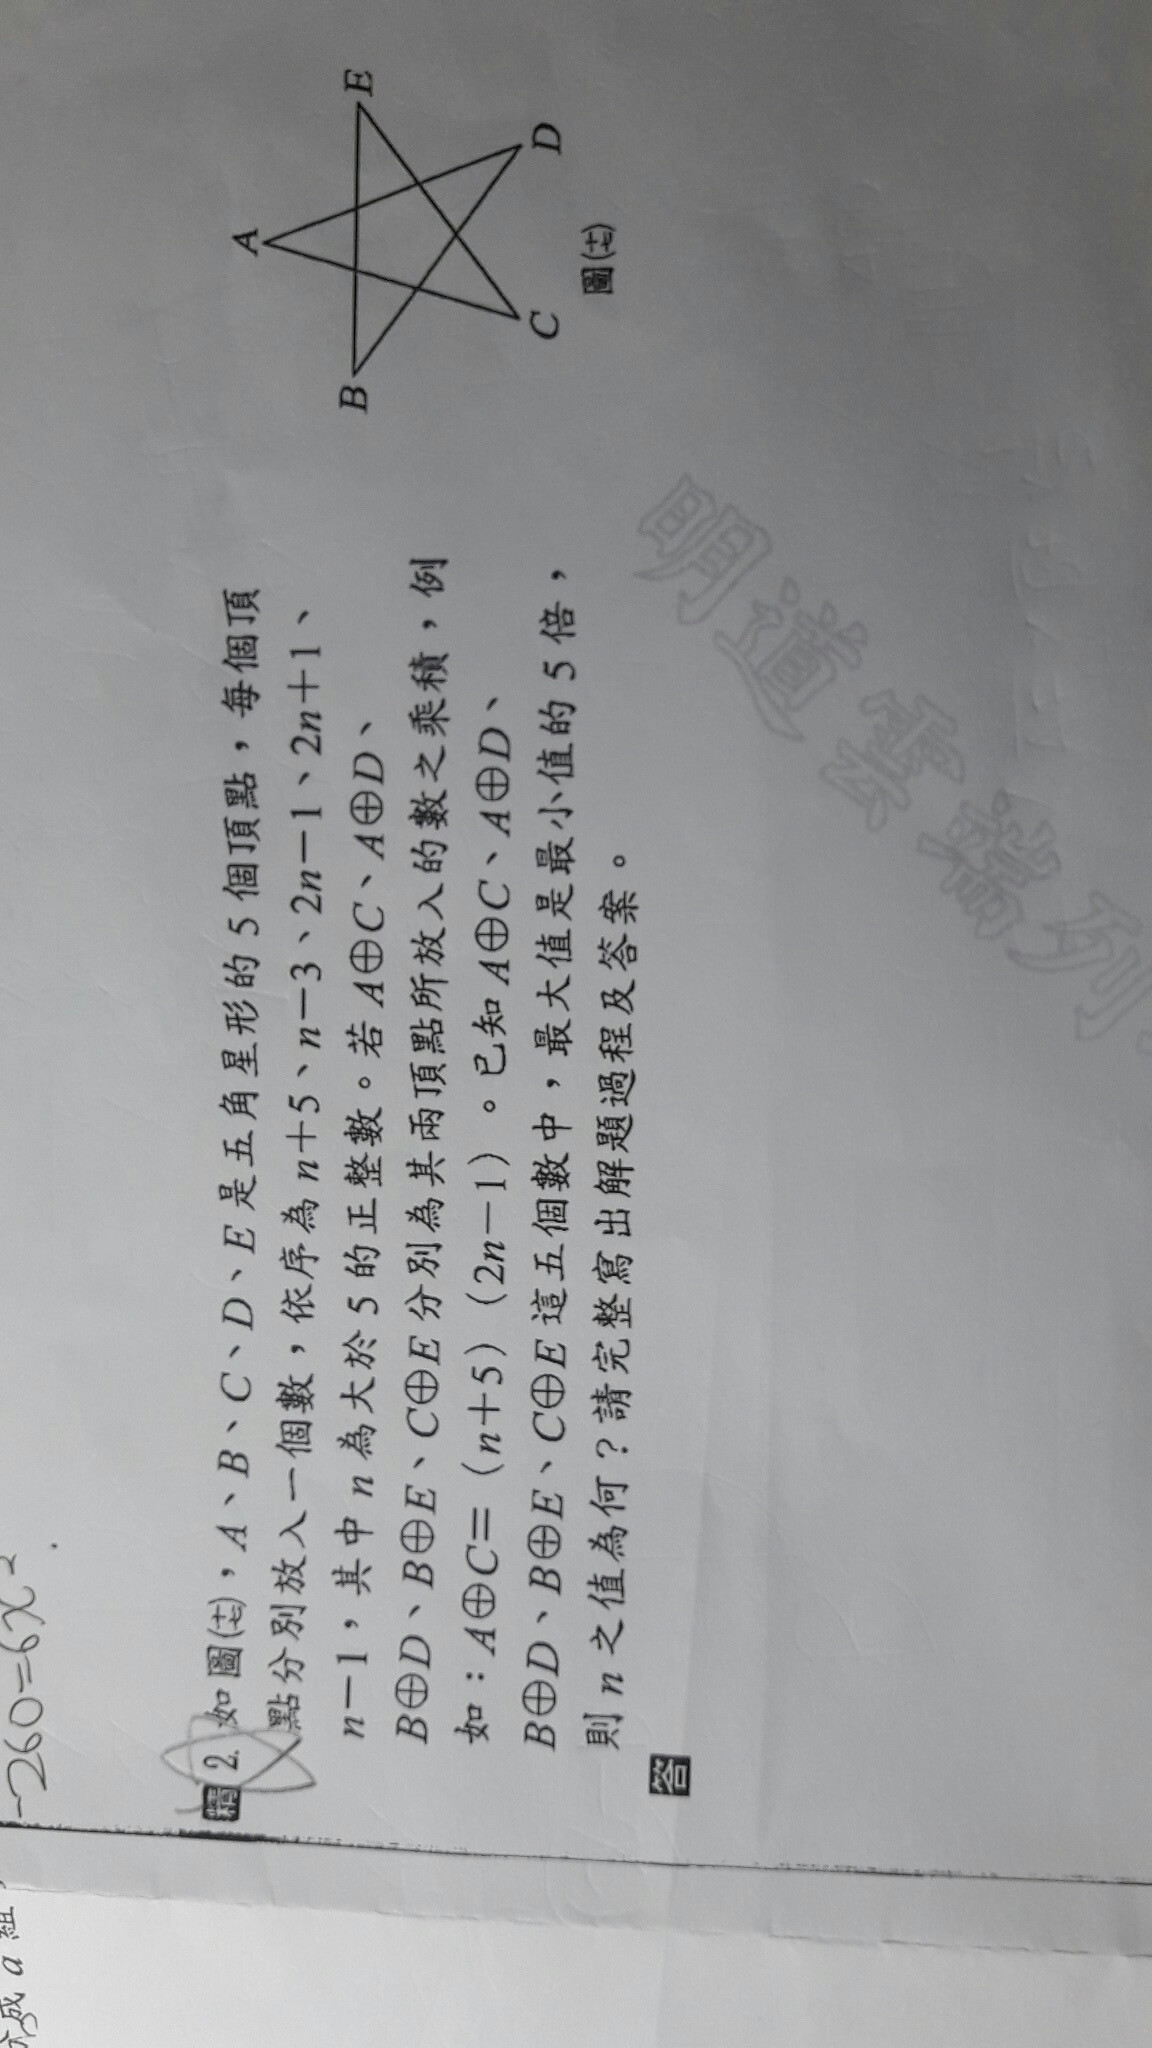 -260=6x²
分成 a 組，
精 2. 如圖(十七)，A、B、C、D、E 是五角星形的 5 個頂點，每個頂
點分別放入一個數，依序為 n＋5、n－3、2n－1、2n＋1、
n－1，其中 n 為大於 5 的正整數。若 A⊕C、A⊕D、
B⊕D、B⊕E、C⊕E 分別為其兩頂點所放入的數之乘積，例
如：A⊕C＝（n＋5）（2n－1）。已知 A⊕C、A⊕D、
B⊕D、B⊕E、C⊕E 這五個數中，最大值是最小值的 5 倍，
則 n 之值為何？請完整寫出解題過程及答案。
答
A
B
E
C
D
圖(十七)
明道雲端列